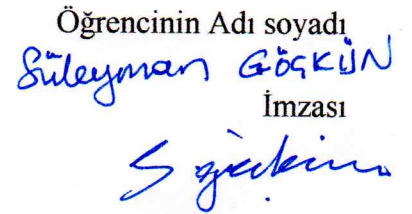 Öğrencinin Adı soyadı
Süleyman GÖÇKÜN
İmzası